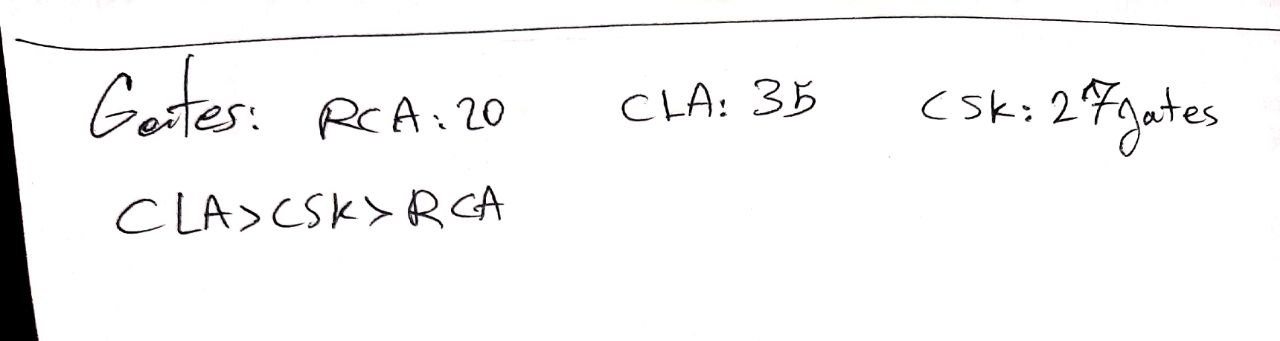 Gates: RCA: 20 CLA: 35 CSK: 27 gates
CLA > CSK > RCA